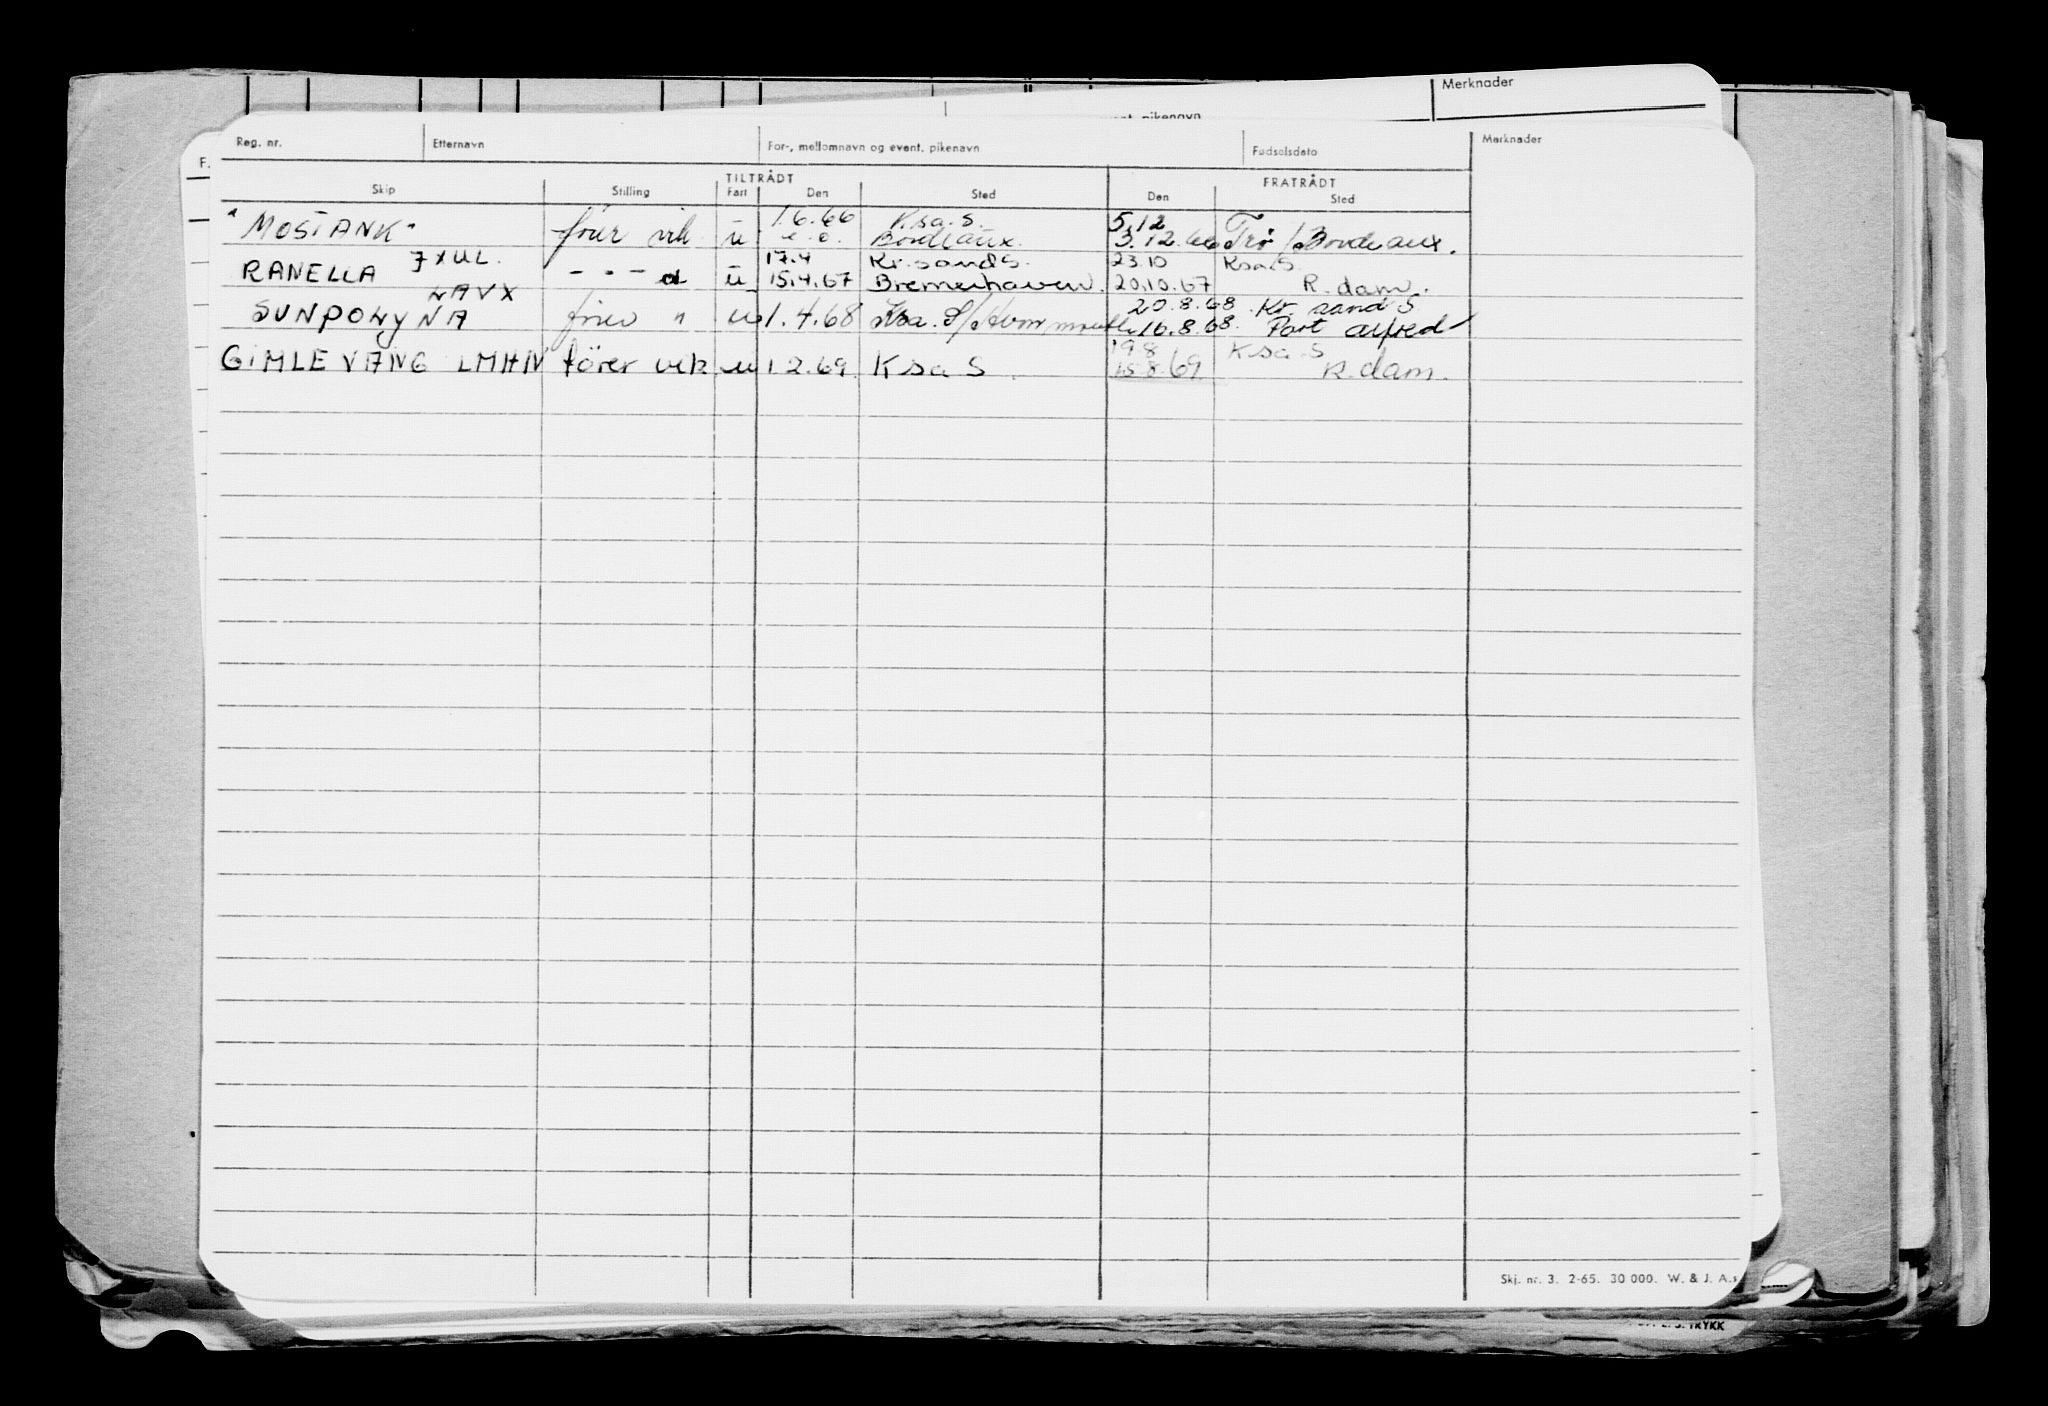 Merknader
Reg. nr. Etternavn For-, mellomnavn og event. pikenavn Fødselsdato Merknader
TILTRÅDT FRATRÅDT
Skip Stilling Fart Den Sted Den Sted
1.6.66 Ksa. S. 5.12
"MOSTANK" fører vik u Bordeaux. 3.12.66 Trø / Bordeaux.
JXUL. 17.4 Kr.sand S. 23.10 Ksa. S.
RANELLA - " - a u 15.4.67 Bremerhaven. 20.10.67 R.dam.
LAVX 20.8.68 Kr.sand S
SUNPOLYNA fører " u 1.4.68 Ksa. S/Avonmouth 16.8.68. Port alfred
19.8 Ksa. S
GIMLEVANG LMHN fører vik u 1.2.69. Ksa S 15.8.69 R.dam.
Skj. nr. 3. 2-65. 30 000. W. & J. A.s